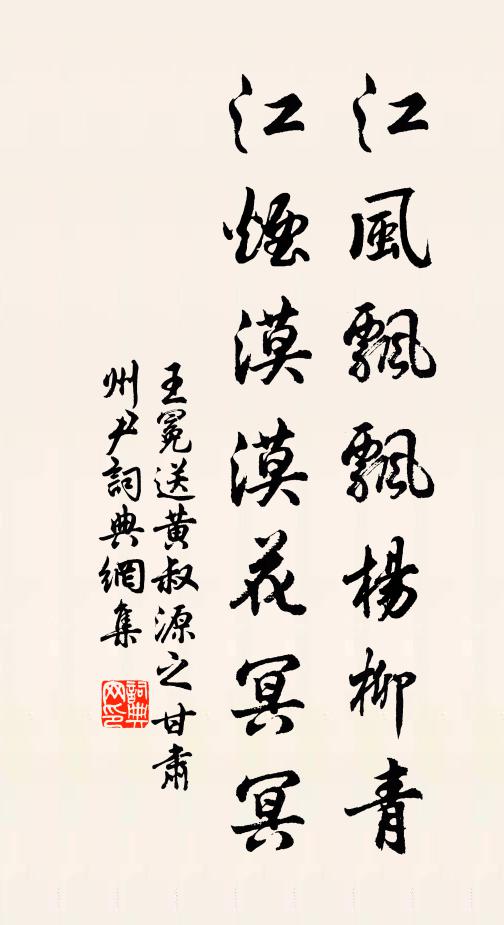 江風飄飄楊柳青
江煙漠漠花冥冥
王冕送黃叔源之甘肅
州尹詞典網集
詞典
网印